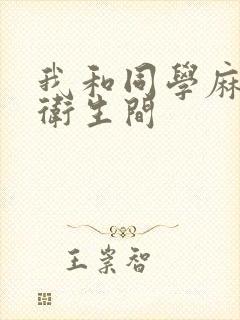 我和同學麻
衛生間
王崇智